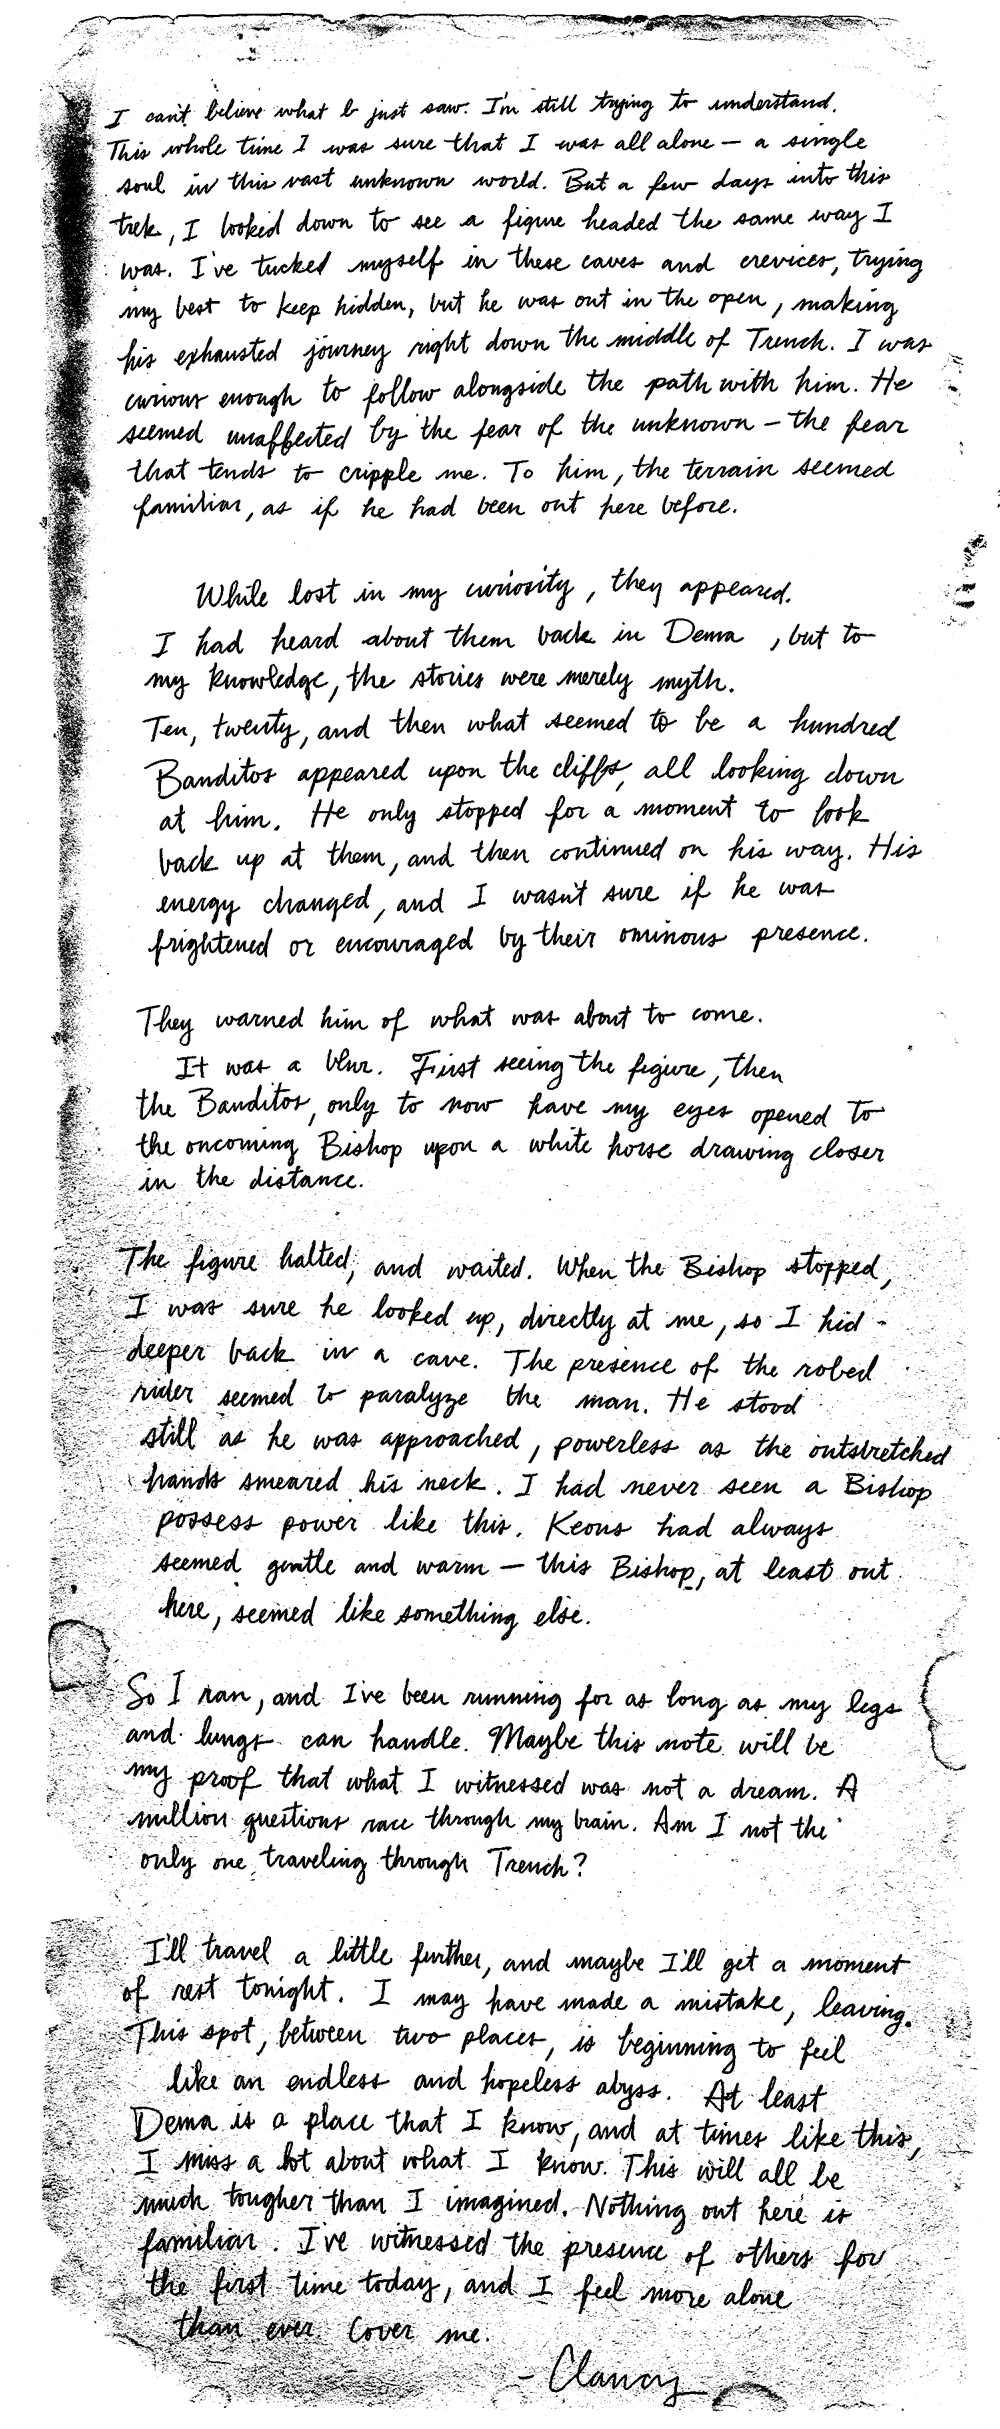 I can't believe what I just saw. I'm still trying to understand.
This whole time I was sure that I was all alone – a single
soul in this vast unknown world. But a few days into this
trek, I looked down to see a figure headed the same way I
was. I've tucked myself in these caves and crevices, trying
my best to keep hidden, but he was out in the open, making
his exhausted journey right down the middle of Trench. I was
curious enough to follow alongside the path with him. He
seemed unaffected by the fear of the unknown – the fear
that tends to cripple me. To him, the terrain seemed
familiar, as if he had been out here before.
While lost in my curiosity, they appeared.
I had heard about them back in Dema, but to
my knowledge, the stories were merely myth.
Ten, twenty, and then what seemed to be a hundred
Banditos appeared upon the cliffs, all looking down
at him. He only stopped for a moment to look
back up at them, and then continued on his way. His
energy changed, and I wasn't sure if he was
frightened or encouraged by their ominous presence.
They warned him of what was about to come.
It was a blur. First seeing the figure, then
the Banditos, only to now have my eyes opened to
the oncoming Bishop upon a white horse drawing closer
in the distance.
The figure halted, and waited. When the Bishop stopped,
I was sure he looked up, directly at me, so I hid
deeper back in a cave. The presence of the robed
rider seemed to paralyze the man. He stood
still as he was approached, powerless as the outstretched
hands smeared his neck. I had never seen a Bishop
possess power like this. Keons had always
seemed gentle and warm – this Bishop, at least out
here, seemed like something else.
So I ran, and I've been running for as long as my legs
and lungs can handle. Maybe this note will be
my proof that what I witnessed was not a dream. A
million questions race through my brain. Am I not the
only one traveling through Trench?
I'll travel a little further, and maybe I'll get a moment
of rest tonight. I may have made a mistake, leaving.
This spot, between two places, is beginning to feel
like an endless and hopeless abyss. At least
Dema is a place that I know, and at times like this,
I miss a lot about what I know. This will all be
much tougher than I imagined. Nothing out here is
familiar. I've witnessed the presence of others for
the first time today, and I feel more alone
than ever. Cover me.
– Clancy